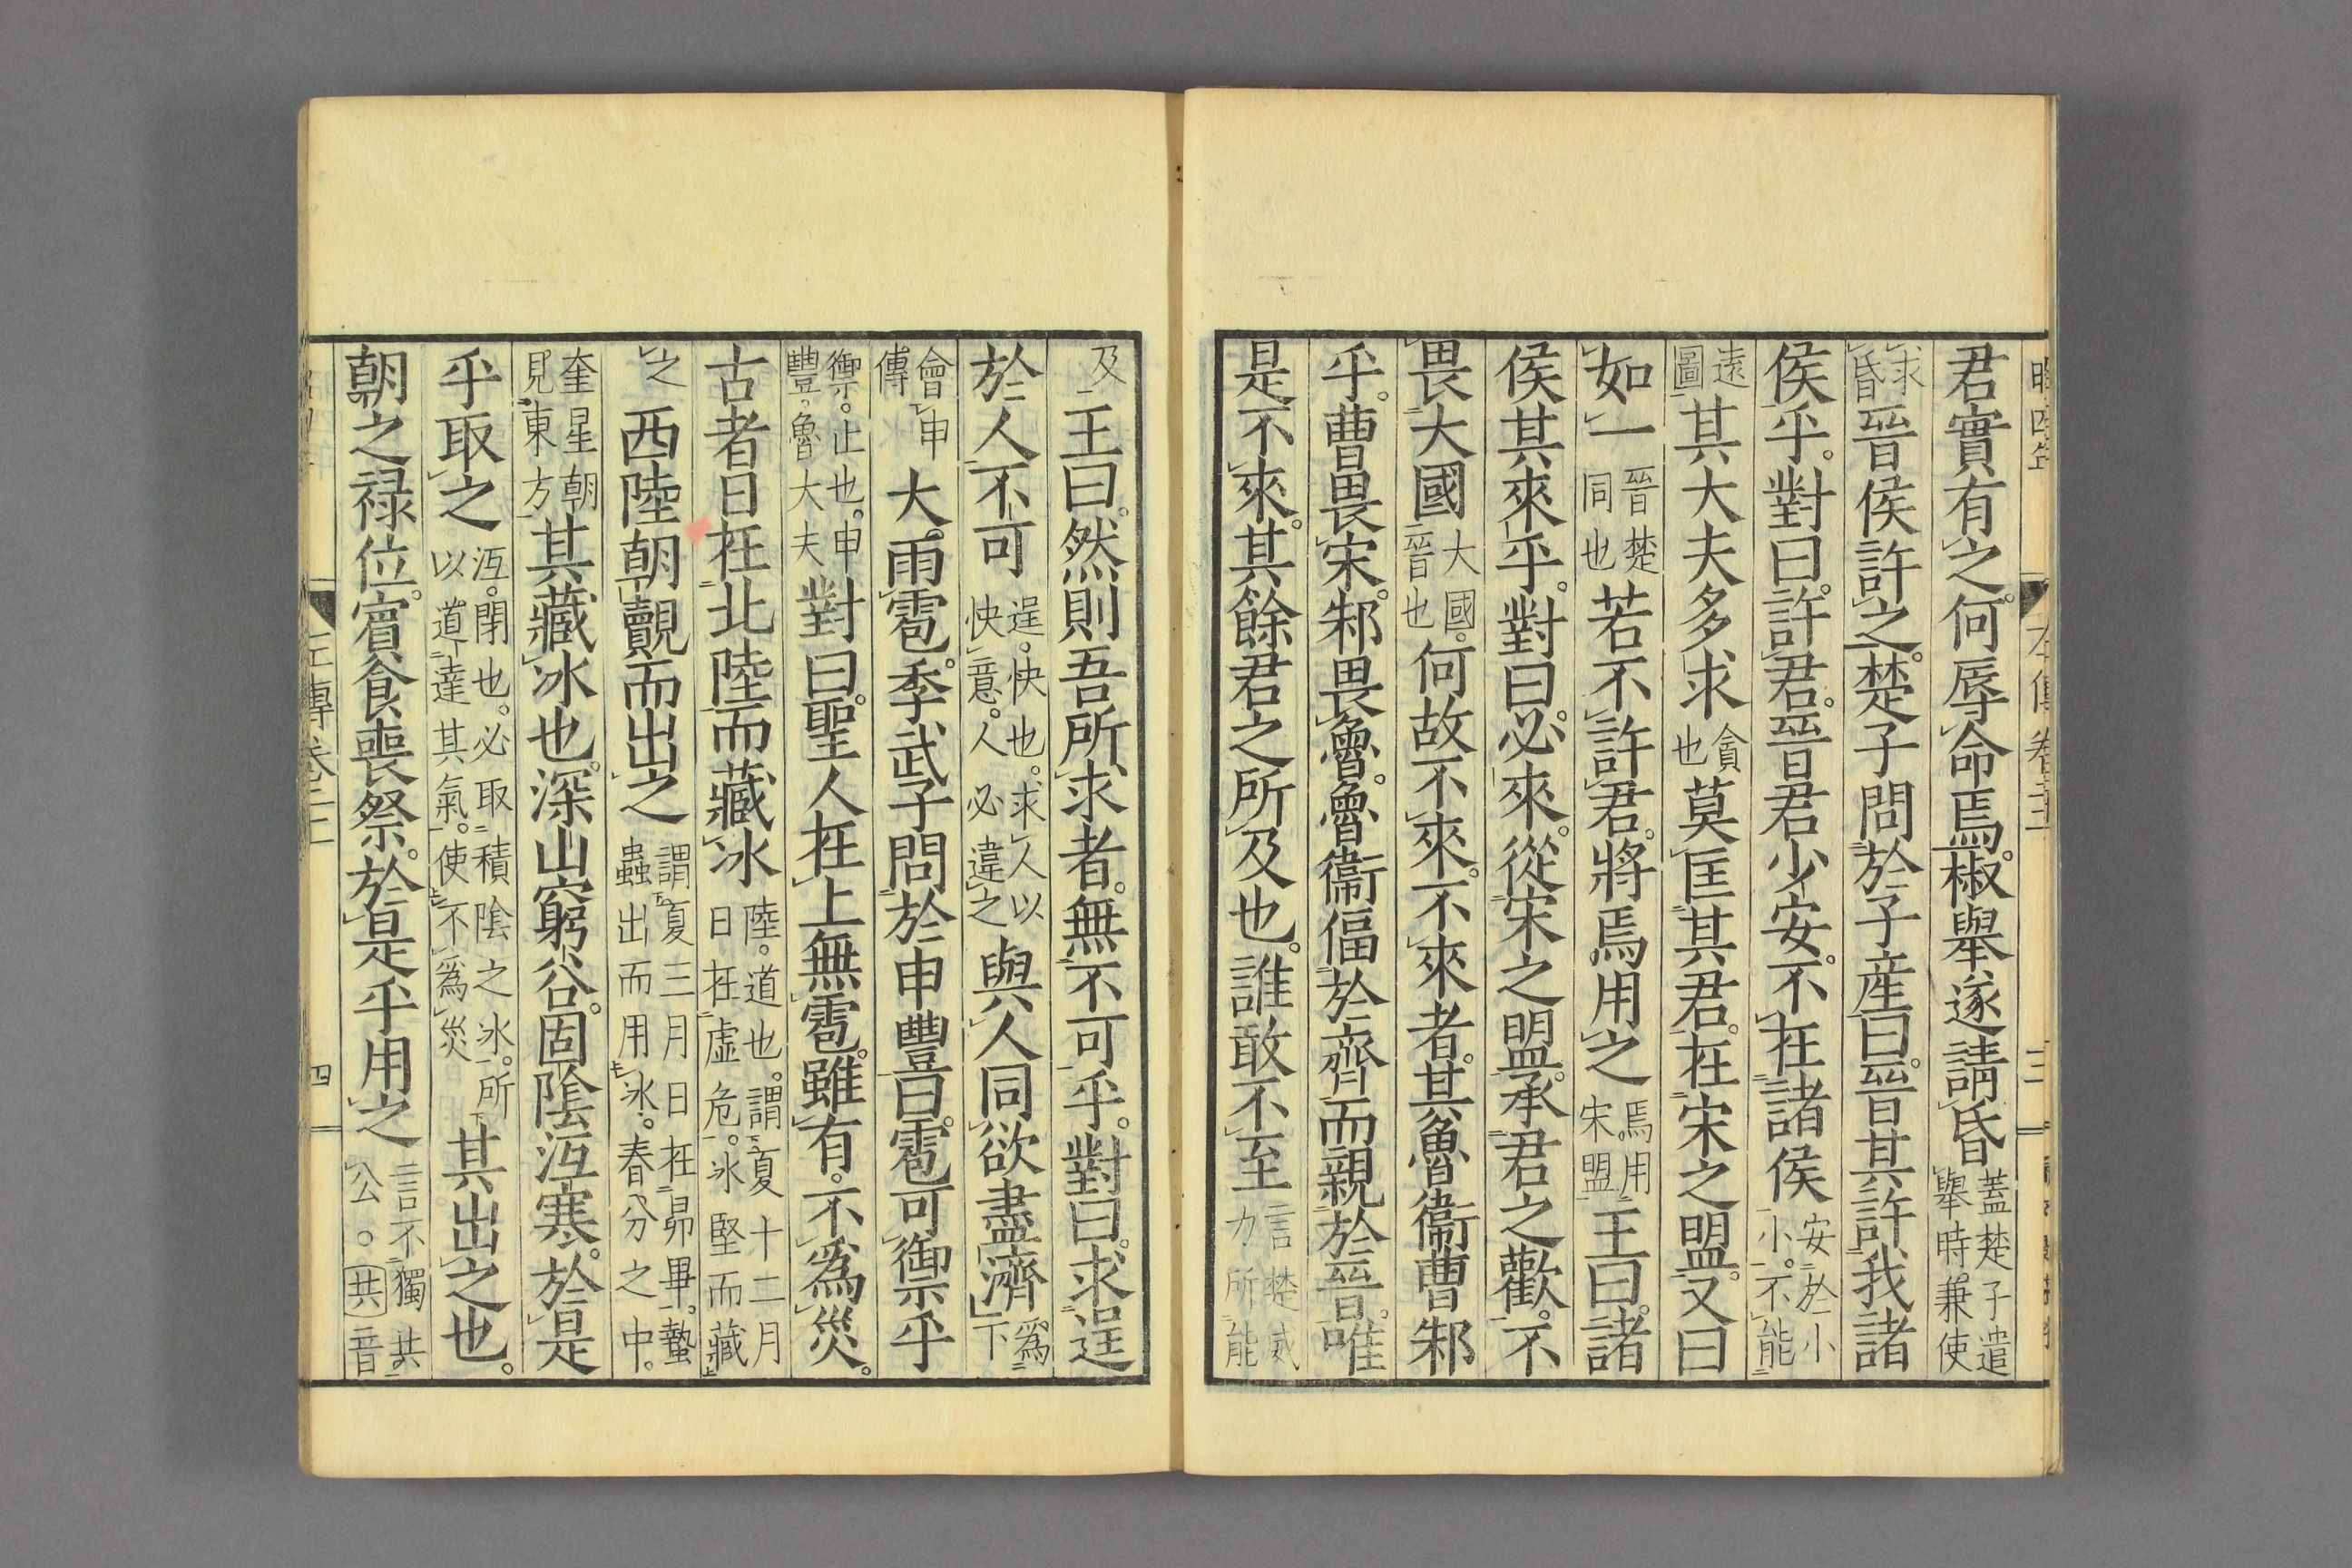 君實有之。何辱命焉。椒舉遂請昏蓋楚子遣舉時兼使
求昏晉侯許之。楚子問於子産曰。晉其許我諸
侯乎。對曰。許君。晉君少安。不在諸侯安於小小。不能
遠圖其大夫多求貪也莫匡其君。在宋之盟。又曰
如一晉楚同也若不許君。將焉用之焉用宋盟王曰。諸
侯其來乎。對曰。必來。從宋之盟。承君之歡。不
畏大國大國。晉也何故不來。不來者。其魯衞曹邾
乎。曹畏宋。邾畏魯。魯衞偪於齊而親於晉。唯
是不來。其餘君之所及也。誰敢不至言楚威力所能
及王曰。然則吾所求者。無不可乎。對曰。求逞
於人不可逞。快也。求人以快意。人必違之與人同欲盡濟爲下
會申傳大雨雹。季武子問於申豐曰。雹可禦乎
禦。止也。申豐。魯大夫對曰。聖人在上無雹。雖有。不爲災。
古者日在北陸而藏冰陸。道也。謂夏十二月日在虛危。冰堅而藏
之西陸朝覿而出之謂夏三月日在昴畢。蟄蟲出而用冰。春分之中。
奎星朝見東方其藏冰也。深山窮谷。固陰沍寒。於是
乎取之沍。閉也。必取積陰之冰。所以道達其氣。使不爲災其出之也。
朝之祿位。賓食喪祭。於是乎用之言不獨共公。共音
昭四年
左傳卷二十一
三
四